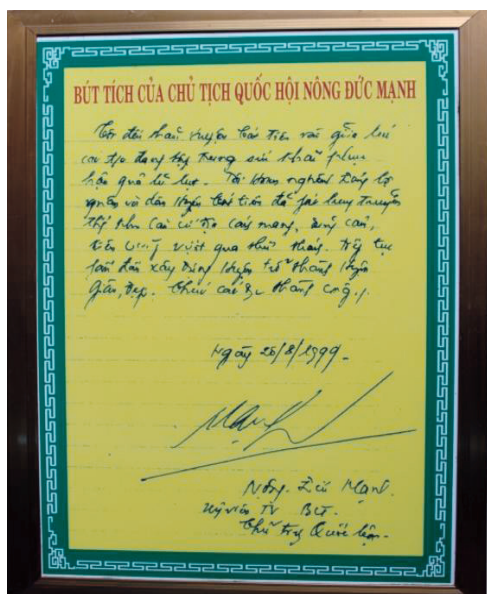 BÚT TÍCH CỦA CHỦ TỊCH QUỐC HỘI NÔNG ĐỨC MẠNH
Tôi đến thăm huyện Cát Tiên vào giữa lúc
các đ/c đang tập trung sức khắc phục
hậu quả lũ lụt. Tôi hoan nghênh Đảng bộ
quân và dân huyện Cát Tiên đã phát huy truyền
thống cách mạng, dũng cảm,
vượt qua thử thách. tiếp tục
phấn đấu xây dựng huyện trở thành huyện
giàu, đẹp. Chúc các đ/c thành công./.
Ngày 26/8/1999.
Mạnh
Nông Đức Mạnh.
Uỷ viên TV BCT.
Chủ tịch Quốc hội.